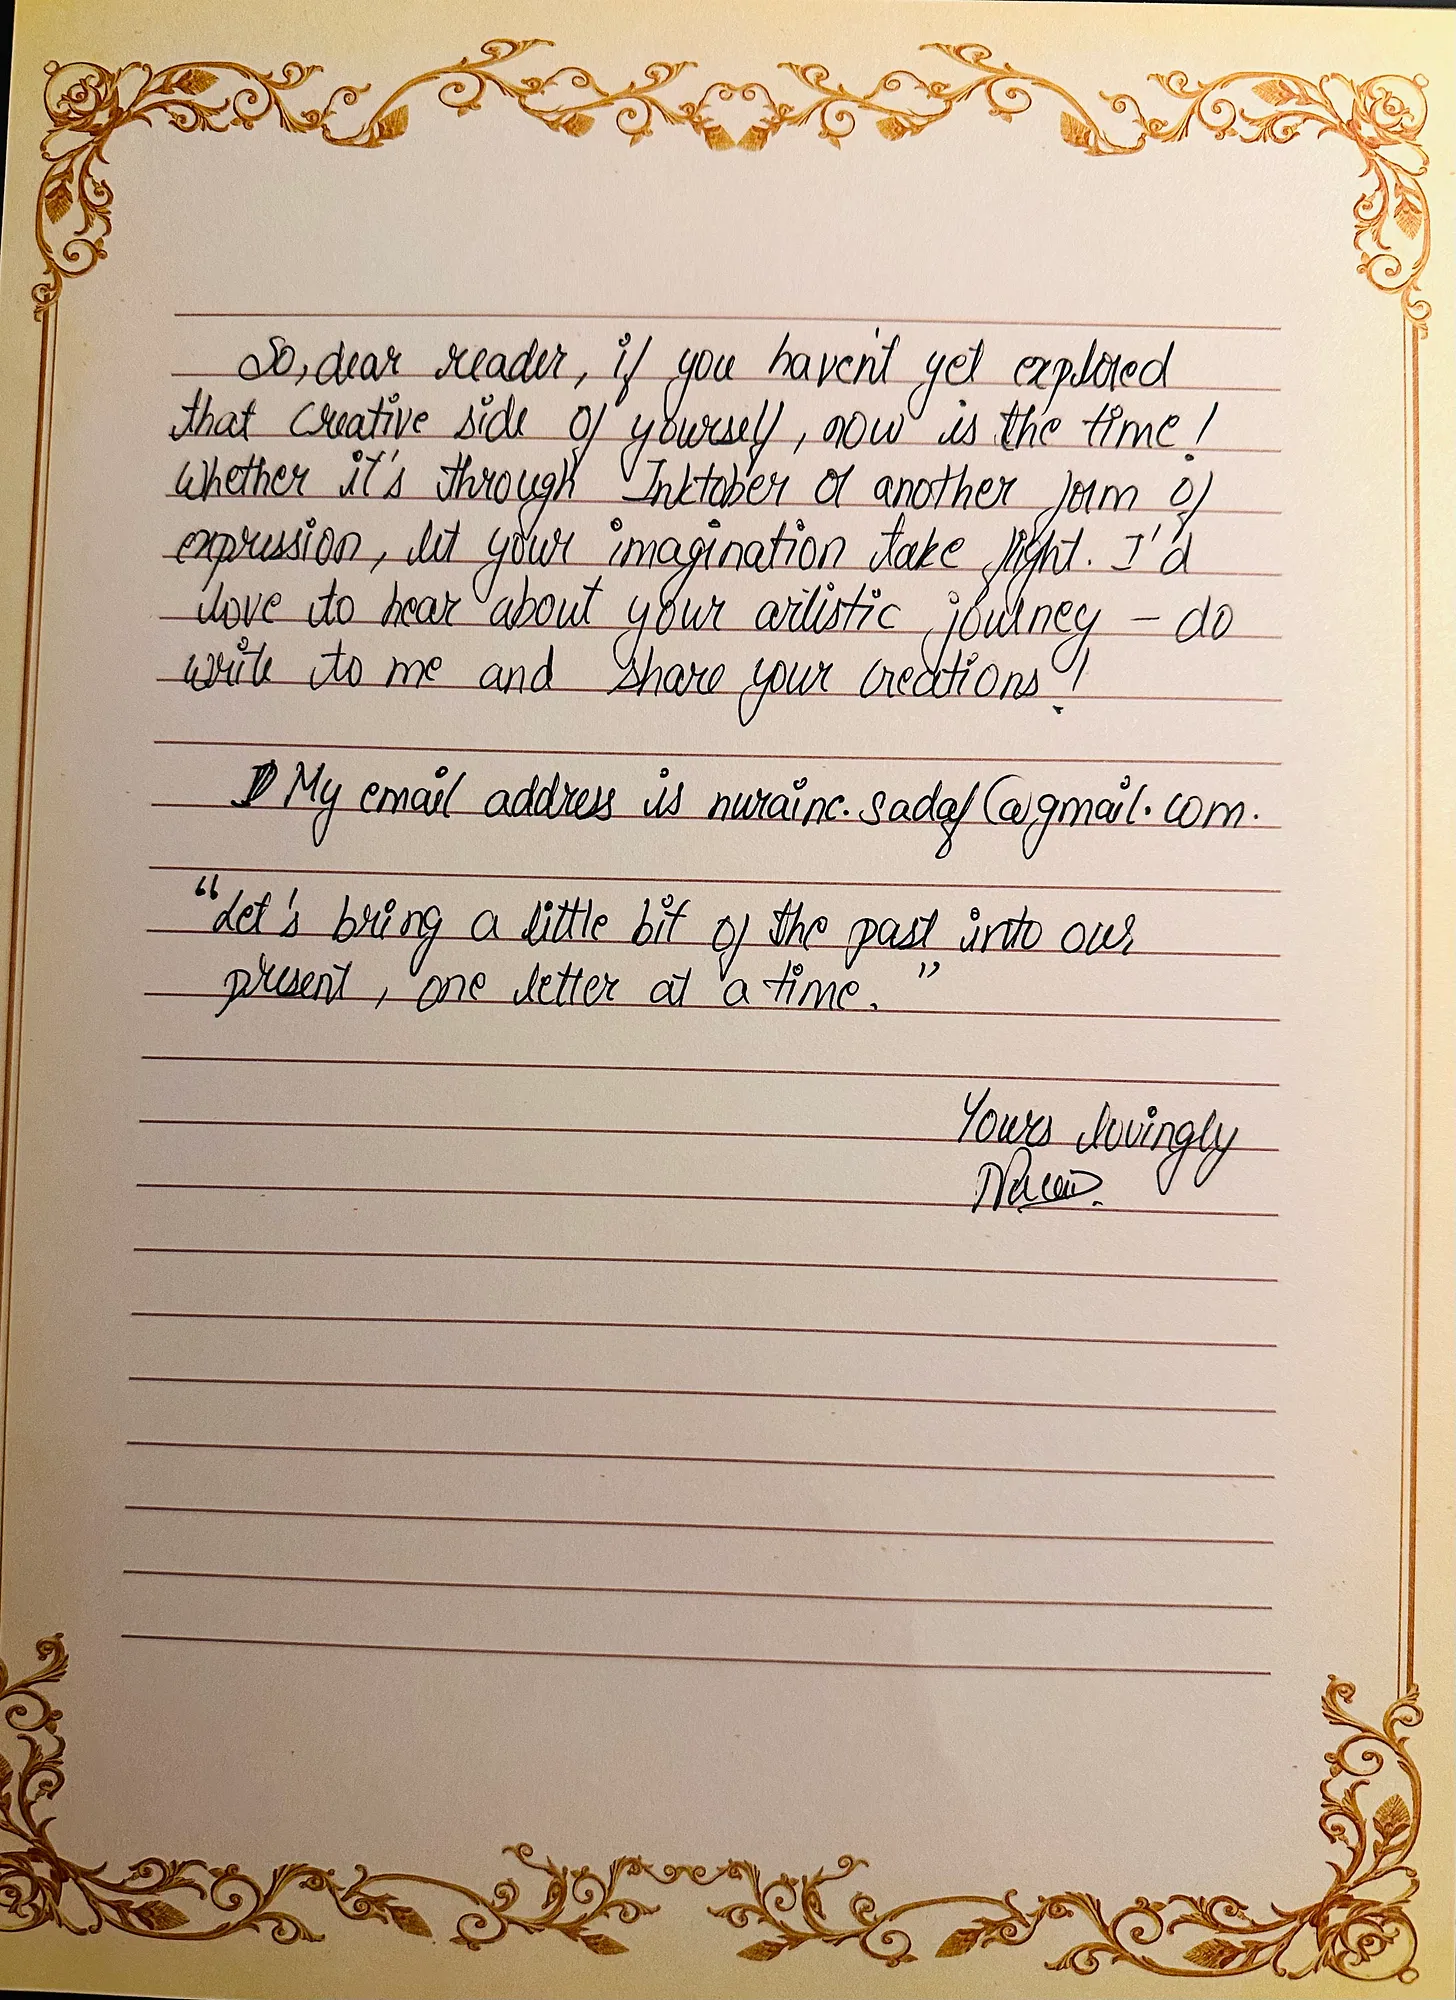 So, dear reader, if you haven't yet explored
that creative side of yourself, now is the time!
Whether it's through Inktober or another form of
expression, let your imagination take flight. I'd
love to hear about your artistic journey – do
write to me and share your creations!
My email address is nurainc.sadaf@gmail.com.
“Let's bring a little bit of the past into our
present, one letter at a time.”
Yours lovingly